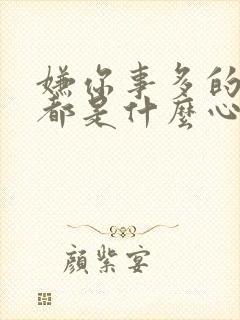 嫌你事多的
都是什麼心
顏紫宴